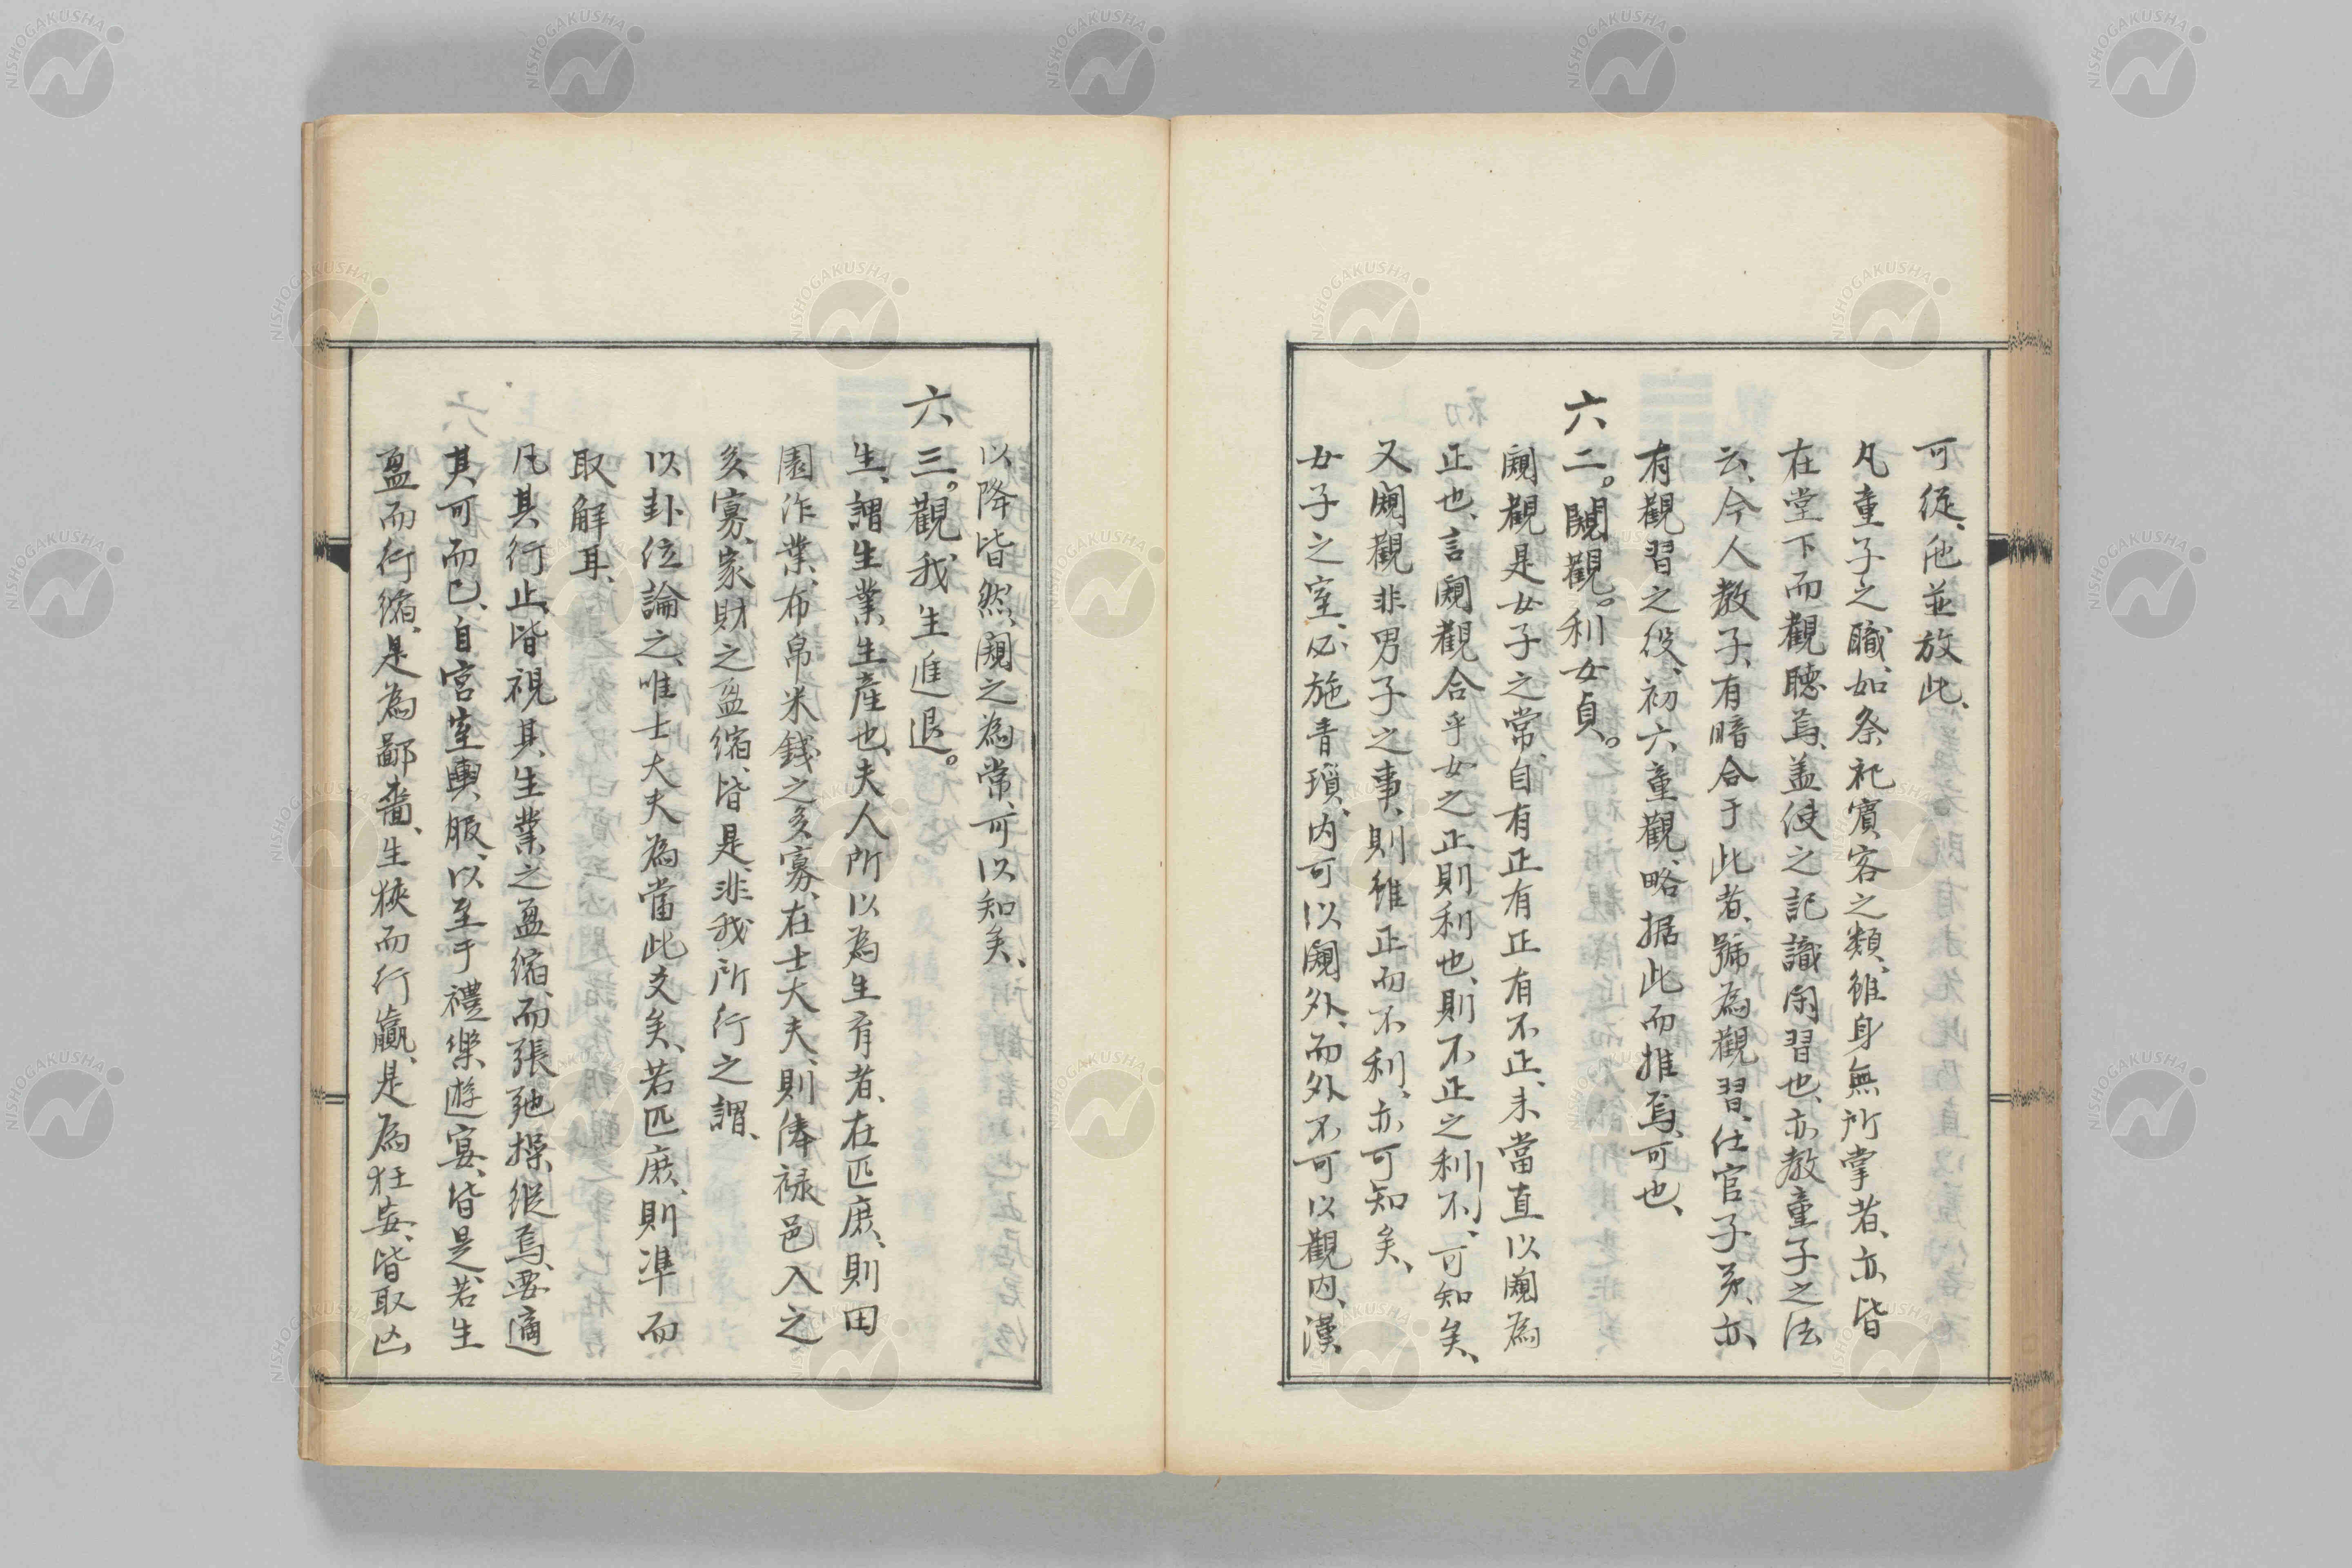 可從、他並放此、
凡童子之職、如祭祀賓客之類、雖身無所掌者、亦皆
在堂下而觀聽焉、蓋使之記識閑習也、亦教童子之法
云、今人教子、有暗合于此者、號為觀習、仕官子弟、亦
有觀習之役、初六童觀、略据此而推焉、可也、
六二。闚觀。利女貞。
闚觀是女子之常、自有正有正有不正、未當直以闚為
正也、言闚觀合乎女之正則利也、則不正之利不利、可知矣、
又闚觀非男子之事、則雖正而不利、亦可知矣、
女子之室、必施青瑣、內可以闚外、而外不可以觀內、漢
以降皆然、闚之為常、可以知矣、
六三。觀我生進退。
生、謂生業生產也、夫人所以為生育者、在匹庶、則田
園作業、布帛米錢之多寡、在士大夫、則俸祿邑入之
多寡、家財之盈縮、皆是、非我所行之謂、
以卦位論之、唯士大夫為當此爻矣、若匹庶、則準而
取解耳、
凡其行止、皆視其生業之盈縮、而張弛操縱焉、要適
其可而已、自宮室輿服、以至于禮樂遊宴、皆是、若生
盈而行縮、是為鄙嗇、生狹而行贏、是為狂妄、皆取凶
NISHOGAKUSHA